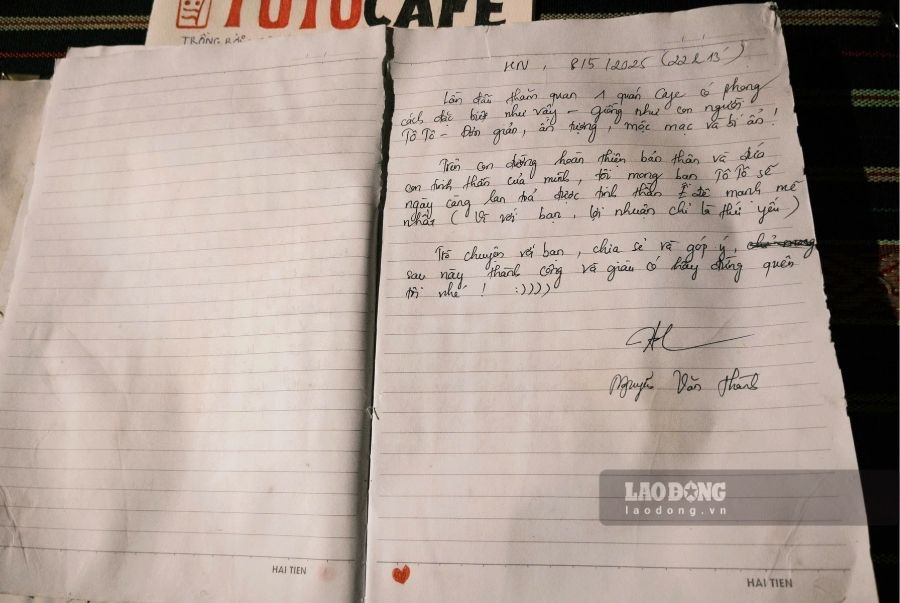 TOTOCAFE
TRỒNG RẢ
HN, 8/5/2025 (22h13')
Lần đầu thăm quan 1 quán Cafe có phong
cách đặc biệt như vậy - giống như con người
Tô Tô - Đơn giản, ấn tượng, mộc mạc và bí ẩn!
Trên con đường hoàn thiện bản thân và đứa
con tinh thần của mình, tôi mong bạn Tô Tô sẽ
ngày càng lan toả được tinh thần ấy mạnh mẽ
nhất (Vì với bạn, lợi nhuận chỉ là thứ yếu)
Trò chuyện với bạn, chia sẻ và góp ý,
sau này thành công và giàu có hãy đừng quên
tôi nhé! :))))
Nguyễn Văn Thành
LAO ĐỘNG
laodong.vn
HAI TIEN
HAI TIEN